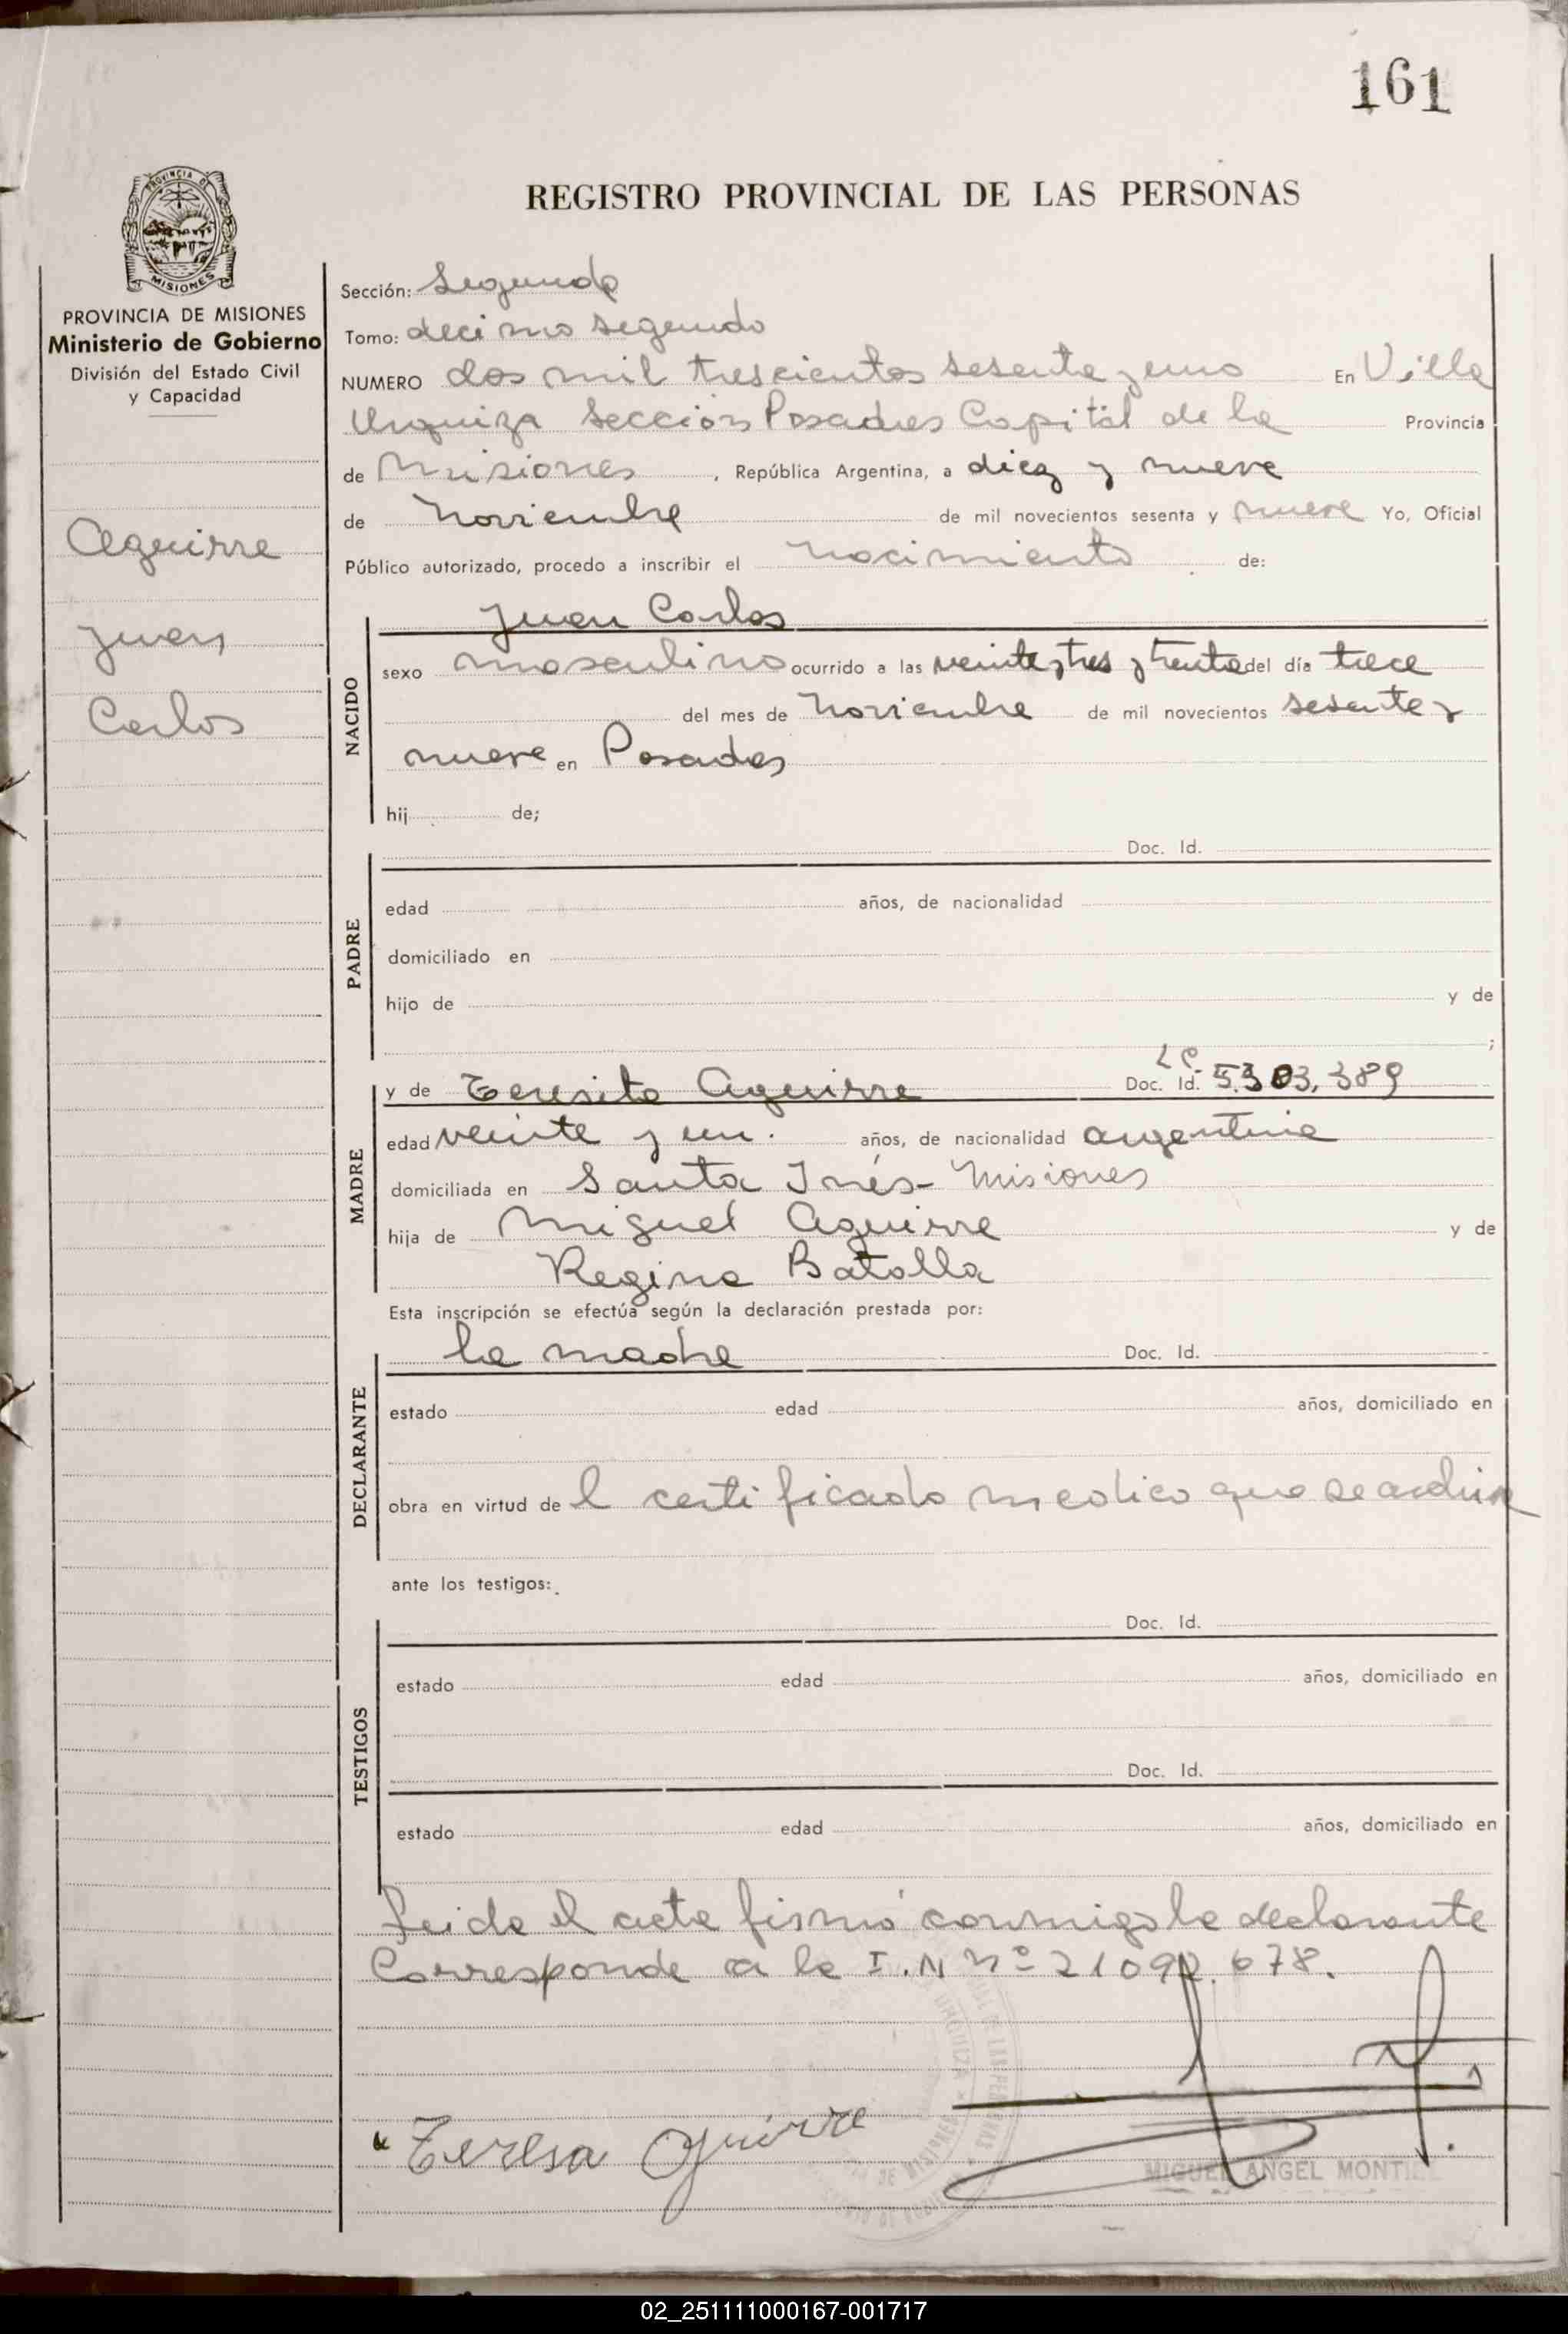 161
PROVINCIA DE
MISIONES
PROVINCIA DE MISIONES
Ministerio de Gobierno
División del Estado Civil
y Capacidad
Aguirre
Juan
Carlos
REGISTRO PROVINCIAL DE LAS PERSONAS
Sección: Segunda
Tomo: decimo segundo
NUMERO dos mil trescientos sesenta y uno En Villa
Urquiza Sección Posadas Capital de la Provincia
de Misiones, República Argentina, a diez y nueve
de Noviembre de mil novecientos sesenta y nueve Yo, Oficial
Público autorizado, procedo a inscribir el nacimiento de:
NACIDO
Juan Carlos
sexo masculino ocurrido a las veinte y tres y treinta del día trece
del mes de Noviembre de mil novecientos sesenta y
nueve en Posadas
hij de;
PADRE
Doc. Id.
edad años, de nacionalidad
domiciliado en
hijo de y de
;
MADRE
L C.
y de Teresita Aguirre Doc. Id. 5.303,389
edad veinte y un. años, de nacionalidad argentina
domiciliada en Santa Inés- Misiones
hija de Miguel Aguirre y de
Regina Batalla
Esta inscripción se efectúa según la declaración prestada por:
DECLARANTE
la madre Doc. Id.
estado edad años, domiciliado en
obra en virtud del certificado medico que se
ante los testigos:
TESTIGOS
Doc. Id.
estado edad años, domiciliado en
Doc. Id.
estado edad años, domiciliado en
Leida el acta firmó conmigo la declarante
Corresponde a la I.N nº 21092.678.
Teresa Aguirre
MIGUEL ANGEL
02_251111000167-001717